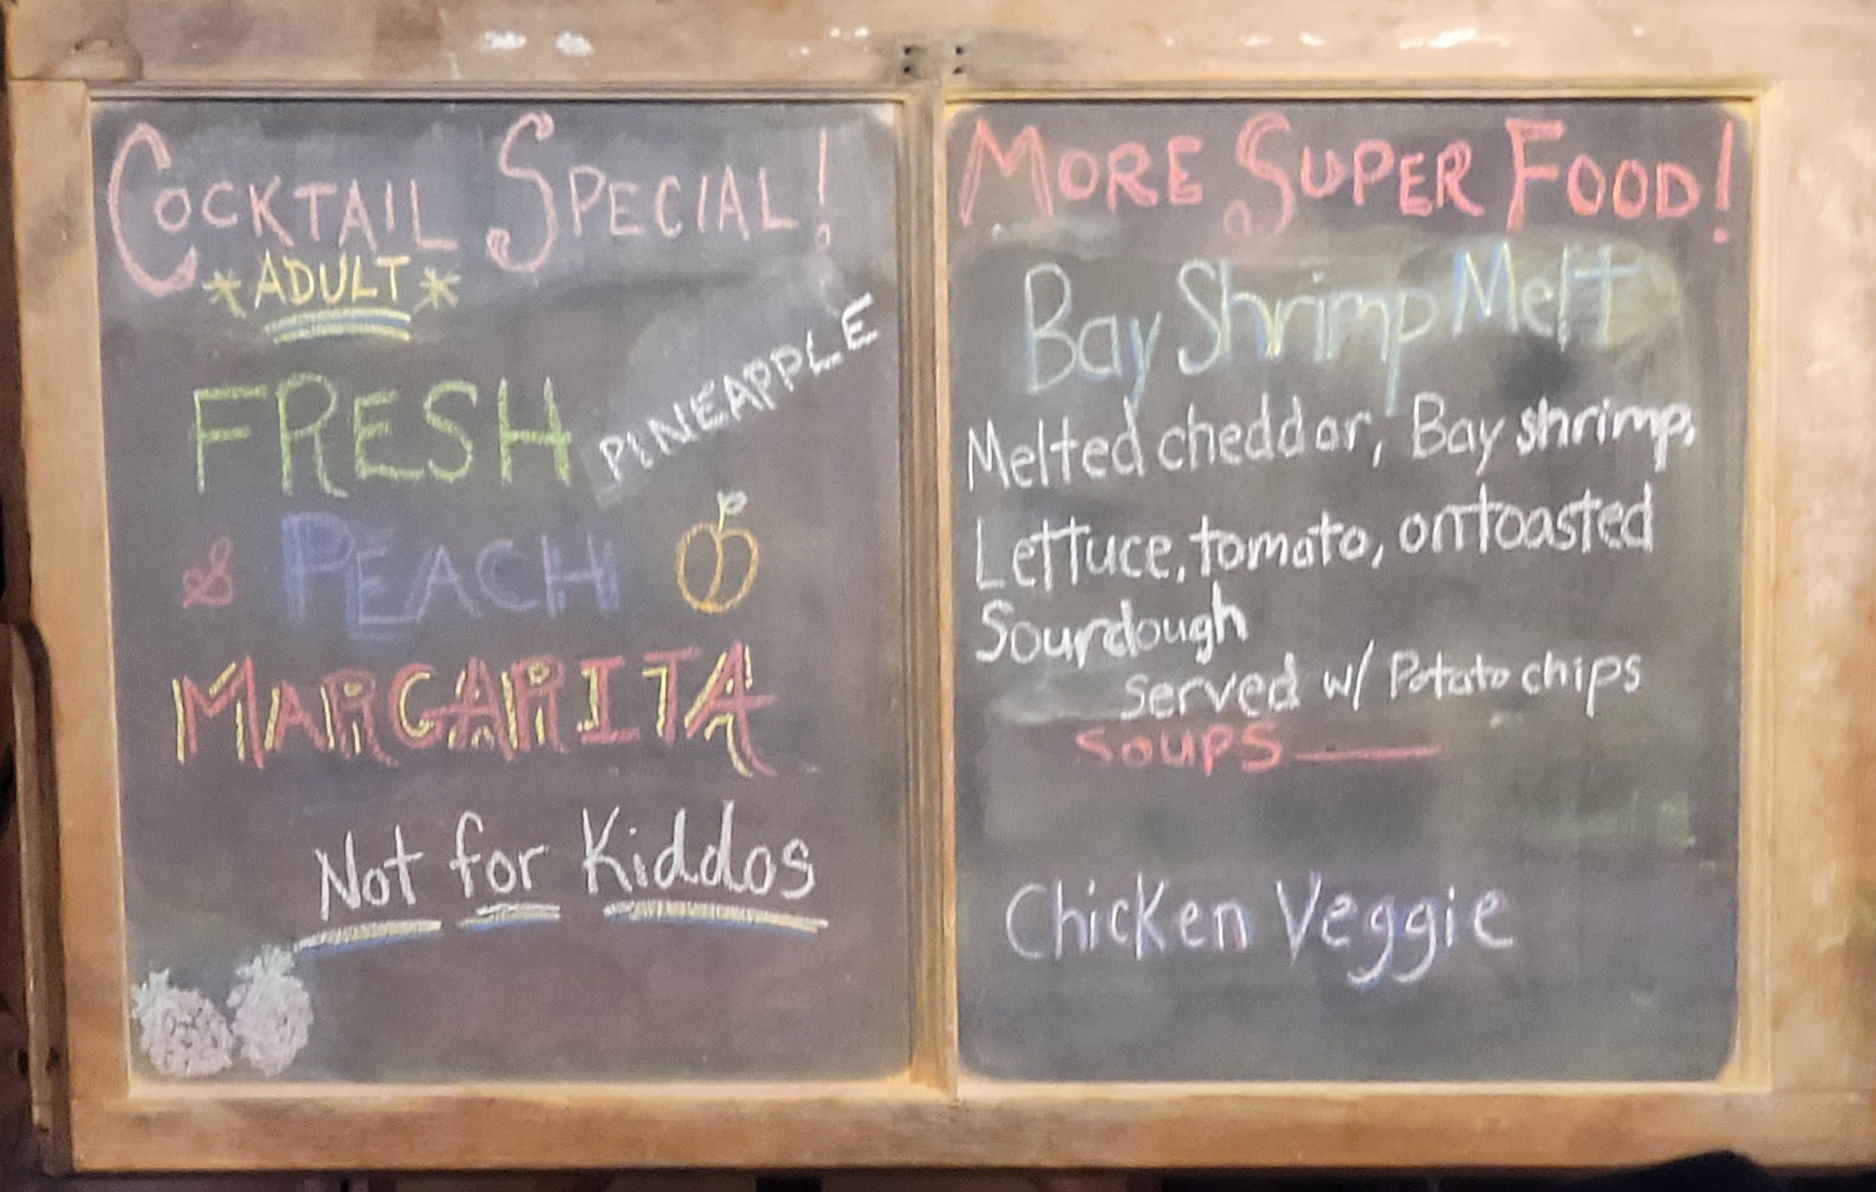 COCKTAIL SPECIAL!
*ADULT*
FRESH PINEAPPLE
& PEACH
MARGARITA
Not for Kiddos
MORE SUPER FOOD!
Bay Shrimp Melt
Melted cheddar, Bay shrimp,
Lettuce, tomato, on toasted
Sourdough
Served w/ Potato chips
SOUPS
Chicken Veggie